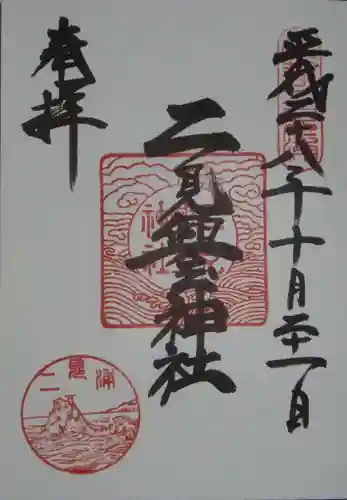 平成二十八年十月二十一日
二見興玉神社
奉拝
二見浦